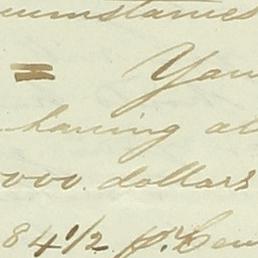 cumstances
= You
having al
000. dollars
84 1/2 pr. Cen